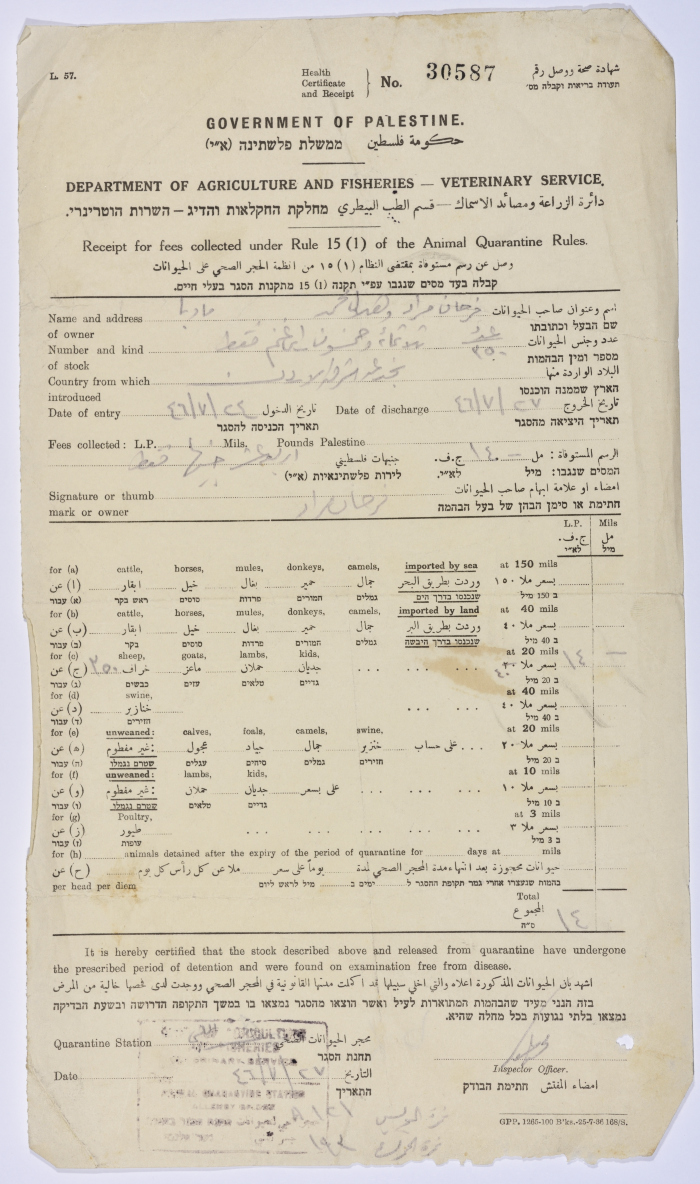 L. 57.
Health Certificate and Receipt } No. 30587
شهادة صحة ووصل رقم
תעודת בריאות וקבלה מס׳
GOVERNMENT OF PALESTINE.
حكومة فلسطين ממשלת פלשתינה (א״י)
DEPARTMENT OF AGRICULTURE AND FISHERIES — VETERINARY SERVICE.
دائرة الزراعة ومصائد الاسماك — قسم الطب البيطري מחלקת החקלאות והדיג – השרות הוטרינרי.
Receipt for fees collected under Rule 15 (1) of the Animal Quarantine Rules.
وصل عن رسم مستوفاة بمقتضى النظام ١٥ (١) من انظمة الحجر الصحي على الحيوانات
קבלה בעד מסים שנגבו עפ״י תקנה 15 (1) מתקנות הסגר בעלי חיים.
Name and address فرحان مراد مادبا اسم وعنوان صاحب الحيوانات
of owner שם הבעל וכתובתו
Number and kind ثلاثماية وخمسون غنم فقط عدد وجنس الحيوانات
of stock ٣٥٠ מספר ומין הבהמות
Country from which شرق الاردن البلاد الواردة منها
introduced הארץ שממנה הוכנסו
Date of entry ٤٦/٧/٢٤ تاريخ الدخول Date of discharge ٤٦/٧/٢٧ تاريخ الخروج
תאריך הכניסה להסגר תאריך היציאה מהסגר
Fees collected: L.P. Mils. Pounds Palestine الرسم المستوفاة: مل — ١٤ ج.ف.
اربعة عشر جنيها فقط جنيهات فلسطيني המסים שנגבו: מיל לא״י.
לירות פלשתינאיות (א״י)
Signature or thumb امضاء او علامة ابهام صاحب الحيوانات
mark or owner فرحان مراد חתימת או סימן הבהן של בעל הבהמה
L.P. Mils
ج.ف. مل
לא״י מיל
for (a) cattle, horses, mules, donkeys, camels, imported by sea at 150 mils
(ا) عن ابقار خيل بغال حمير جمال وردت بطريق البحر بسعر ملا ١٥٠
(א) עבור ראש בקר סוסים פרדות חמורים גמלים שנכנסו בדרך הים ב 150 מיל
for (b) cattle, horses, mules, donkeys, camels, imported by land at 40 mils
(ب) عن ابقار خيل بغال حمير جمال وردت بطريق البر بسعر ملا ٤٠
(ב) עבור בקר סוסים פרדות חמורים גמלים שנכנסו בדרך היבשה ב 40 מיל
for (c) sheep, goats, lambs, kids, at 20 mils
(ج) عن ٣٥٠ خراف ماعز حملان جديان . . . . بسعر ملا ٢٠ ٤٠ ١٤ —
(ג) עבור כבשים עזים טלאים גדיים ב 20 מיל
for (d) swine, at 40 mils
(د) عن خنازير . . . بسعر ملا ٤٠
(ד) עבור חזירים ב 40 מיל
for (e) unweaned: calves, foals, camels, swine, at 20 mils
(ه) عن غير مفطوم: عجول جياد جمال خنزير على حساب . . . بسعر ملا ٢٠
(ה) עבור שטרם נגמלו: עגלים סיחים גמלים חזירים ב 20 מיל
for (f) unweaned: lambs, kids, at 10 mils
(و) عن غير مفطوم: حملان جديان على بسعر . . . بسعر ملا ١٠
(ו) עבור שטרם נגמלו: טלאים גדיים ב 10 מיל
for (g) Poultry, at 3 mils
(ز) عن طيور . . . . . . بسعر ملا ٣
(ז) עבור עופות ב 3 מיל
for (h) animals detained after the expiry of the period of quarantine for days at mils
(ح) عن حيوانات محجوزة بعد انتهاء مدة المحجر الصحي لمدة يوماً على سعر ملا عن كل رأس كل يوم
per head per diem בהמות שנעצרו אחרי גמר תקופת ההסגר ל ימים ב מיל לראש ליום (ח) עבור
Total
المجموع ١٤
ס״ה
It is hereby certified that the stock described above and released from quarantine have undergone
the prescribed period of detention and were found on examination free from disease.
اشهد بان الحيوانات المذكورة اعلاه والتي اخلي سبيلها قد اكملت مدتها القانونية في المحجر الصحي ووجدت لدى فحصها خالية من المرض
בזה הנני מעיד שהבהמות המתוארות לעיל ואשר הוצאו מהסגר נמצאו בו במשך התקופה הדרושה ובשעת הבדיקה
נמצאו בלתי נגועות בכל מחלה שהיא.
Quarantine Station محجر الحيوانات الصحي
תחנת הסגר
Date ٤٦/٧/٢٧ التاريخ
התאריך
Inspector Officer.
امضاء المفتش חתימת הבודק
GPP. 1265-100 B'ks.-25-7-36 168/S.